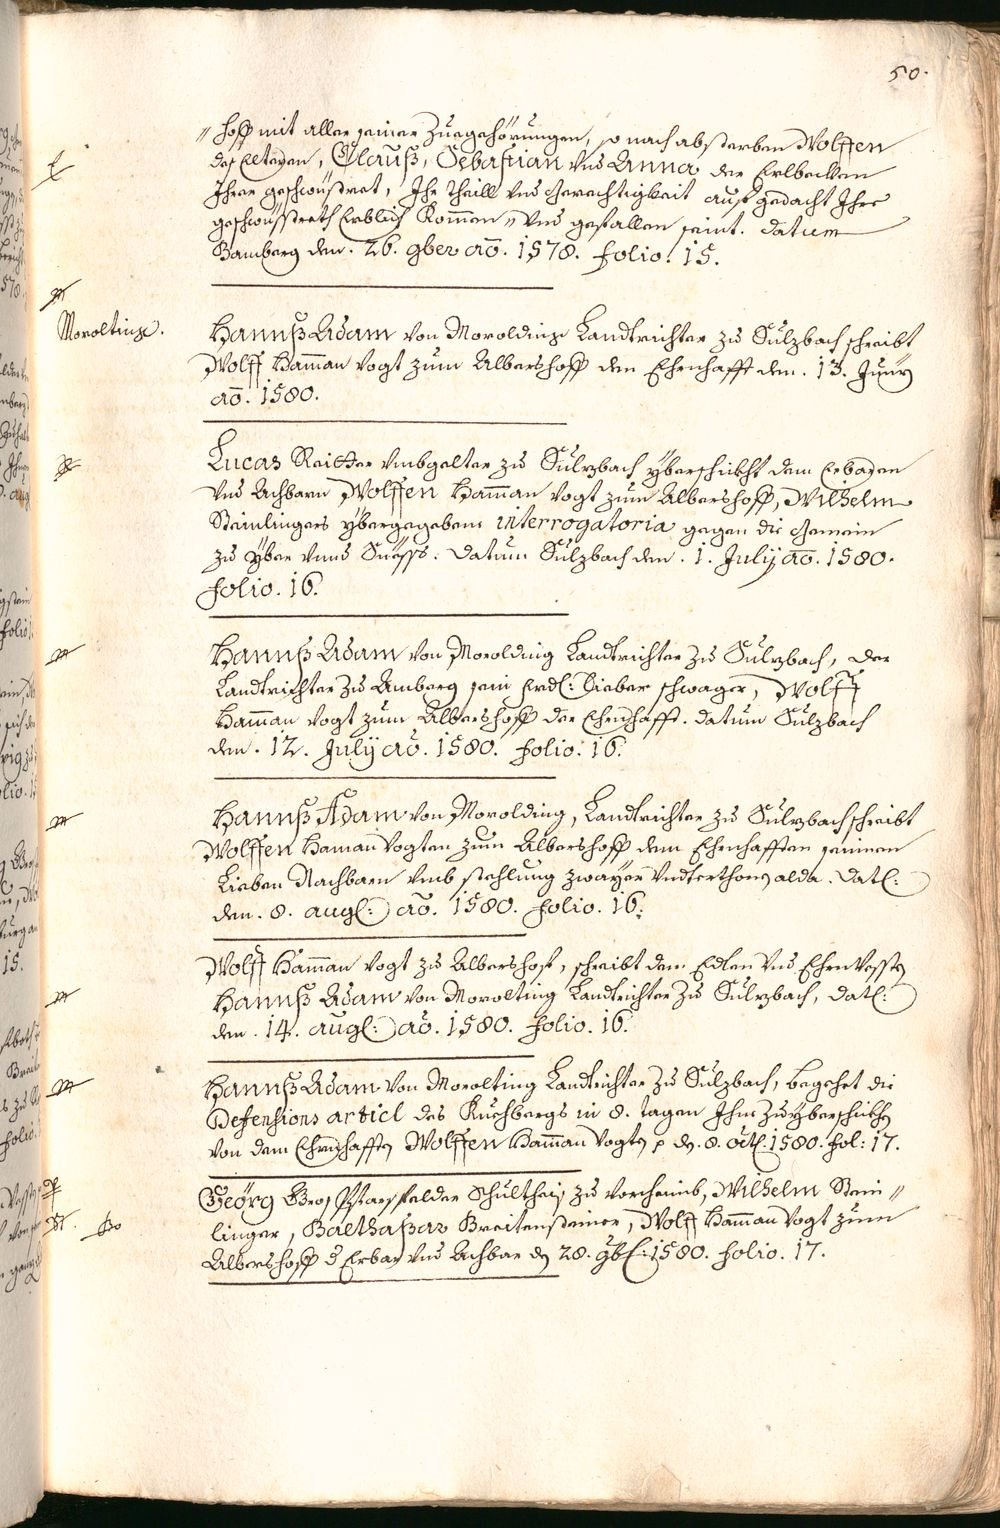 50.
„ hoff mit aller seiner Zuegehörungen, so nach absterben Wolffen
E
des Eltern, Clauß, Sebastian vnd Anna der Erlbeckhen
Ihrer geschwüstret, Ihr theill vnd Gerechtigkeit auß gedacht Ihres
geschwüstreth Erblich kommen „ vnd gefallen seint. datum
Bamberg den. 26. 9ber ao. 1578. folio. 15.
M
Morolting.
Hannß Adam von Morolding Landtrichter zu Sulzbach schreibt
Wolff Hamman Vogt zum Albershoff den Ehrnhafft den. 13. Juny
ao. 1580.
R
Lucas Reitter Vmbgelter zu Sulzbach yberschickht dem Erbaren
vnd Achbarn Wolffen Hamman Vogt zum Albershoff, Wilhelm
Steinlingers ybergegebene interrogatoria gegen die Gemein
zu datum Sulzbach den. 1. July ao. 1580.
folio. 16.
M
Hannß Adam von Morolding Landtrichter zu Sulzbach, der
Landtrichter zu Amberg sein lieber schwager, Wolff
Hamman Vogt zum Albershoff der Ehrnhafft. datum Sulzbach
den. 12. July ao. 1580. folio. 16.
M
Hannß Adam von Morolding, Landtrichter zu Sulzbach schreibt
Wolffen Haman Vogten zum Albershoff dem Ehrnhafften seinen
Lieben Nachbarn vmb stehlung zwayer Vndterthonen alda. Datl:
den. 8. augl: ao. 1580. folio. 16.
Wolff Hamman Vogt zu Albershof, schreibt dem Edlen vnd Ehrnvesten
M
Hannß Adam von Morolting Landtrichter zu Sulzbach, datl:
den. 14. augl: ao. 1580. folio. 16.
M
Hannß Adam von Morolting Landtrichter zu Sulzbach, begehrt die
Defensions articl des Kuehbergs in 8. tagen Ihme zu yberschickhen
von dem Ehrnhafften Wolffen Hamman Vogten den. 8. Octl. 1580. fol: 17.
Georg Schulthais zu Vorchheimb, Wilhelm Stein„
St. Bo
linger, Balthasar Breitensteiner, Wolff Hamman Vogt zum
Albershoff d Erbar vnd Achbar den 28. 9bl: 1580. folio. 17.